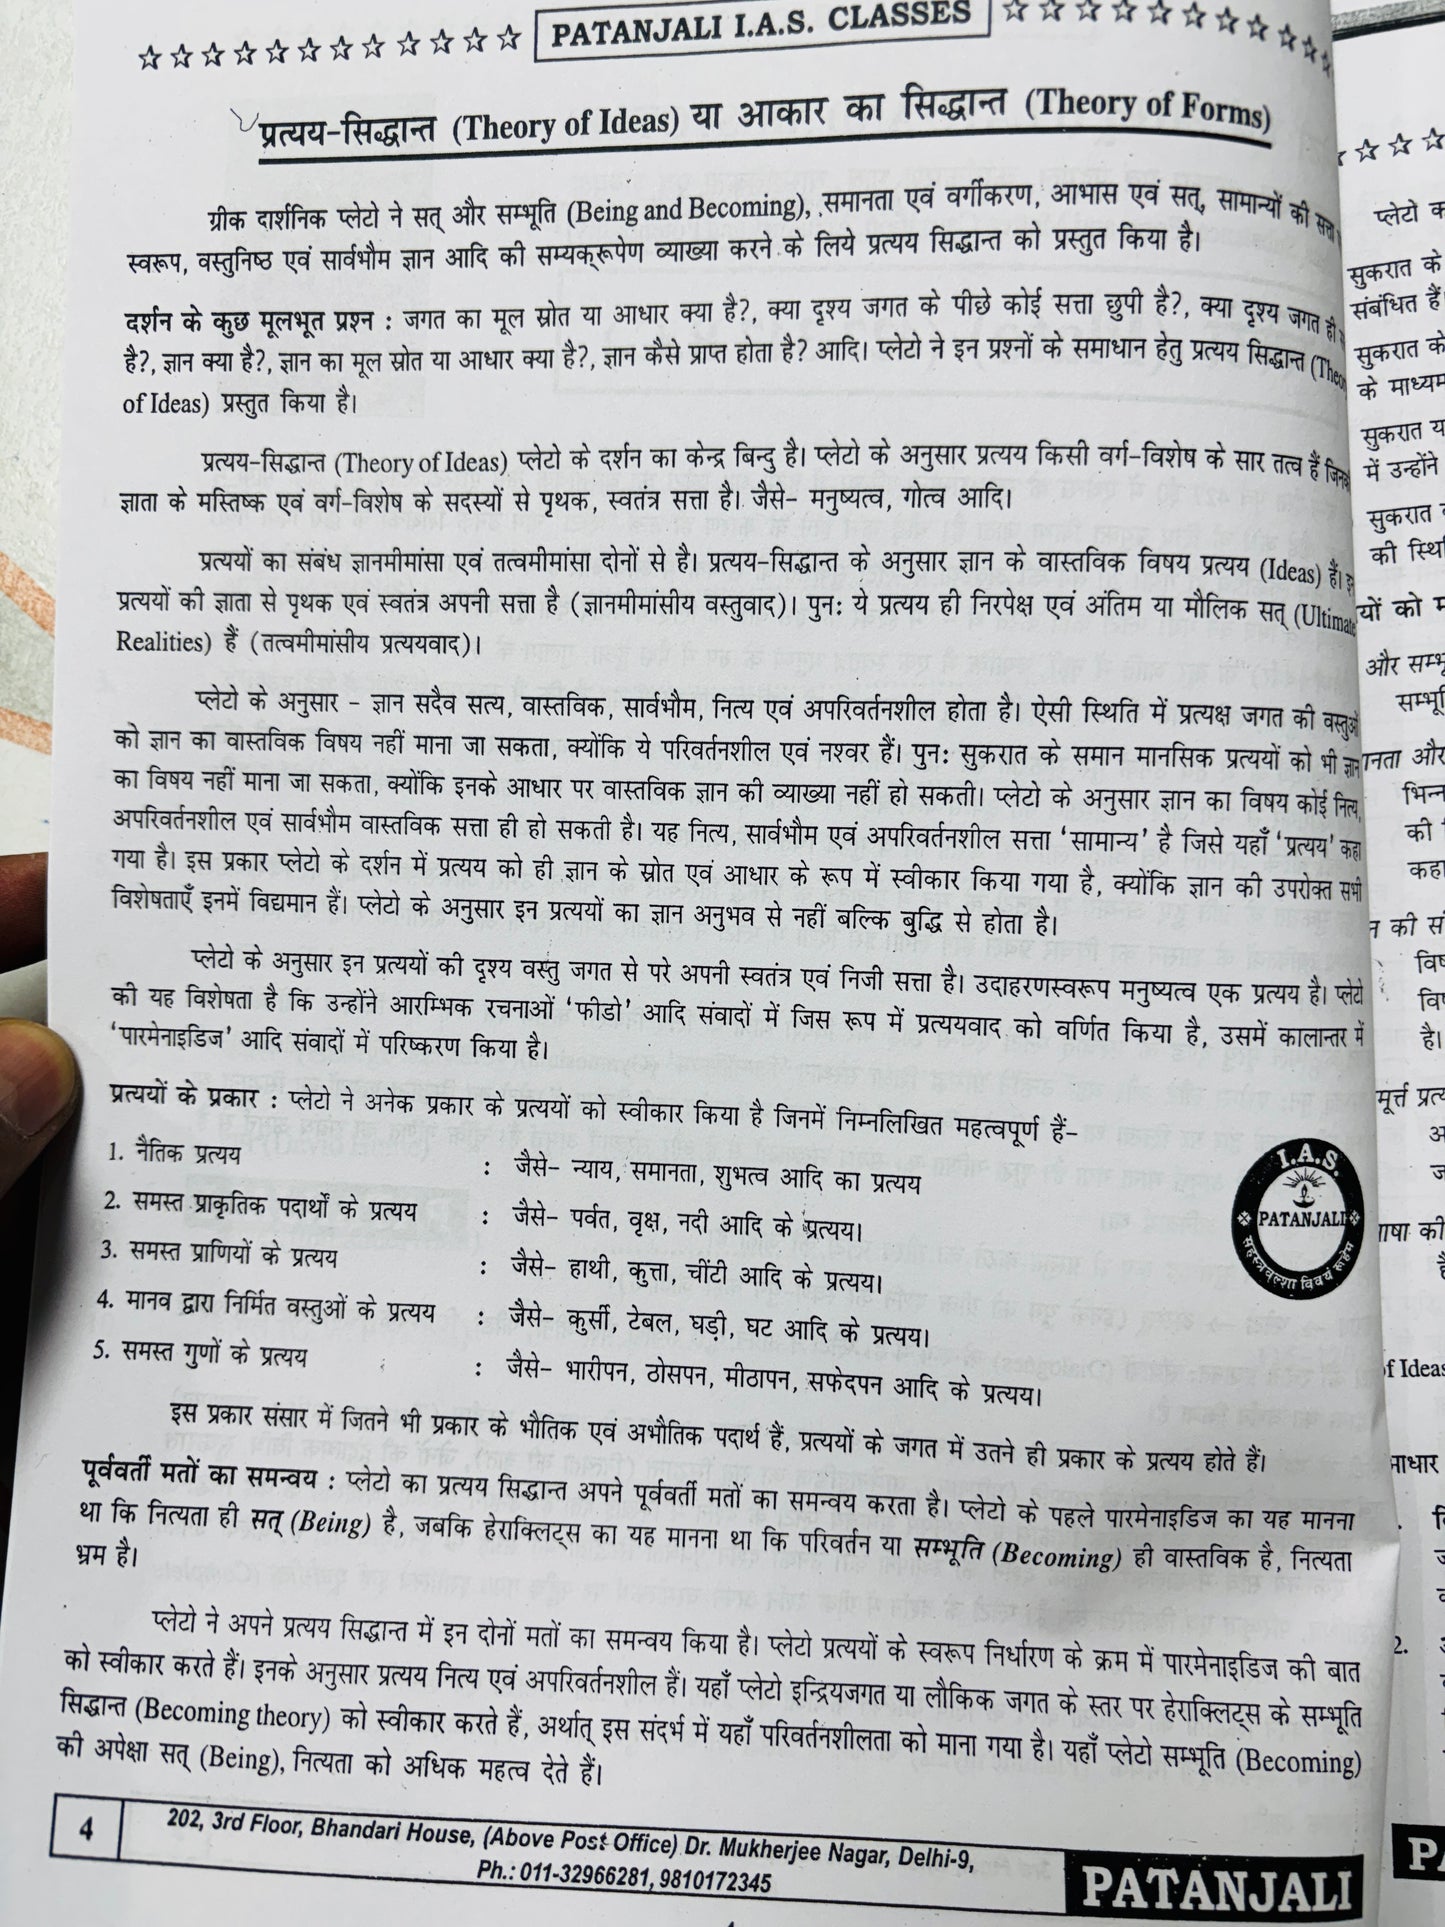 PATANJALI I.A.S. CLASSES
प्रत्यय-सिद्धान्त (Theory of Ideas) या आकार का सिद्धान्त (Theory of Forms)
ग्रीक दार्शनिक प्लेटो ने सत् और सम्भूति (Being and Becoming), समानता एवं वर्गीकरण, आभास एवं सत्, सामान्यों की सत्ता
स्वरूप, वस्तुनिष्ठ एवं सार्वभौम ज्ञान आदि की सम्यक्‌रूपेण व्याख्या करने के लिये प्रत्यय सिद्धान्त को प्रस्तुत किया है।
दर्शन के कुछ मूलभूत प्रश्न : जगत का मूल स्रोत या आधार क्या है?, क्या दृश्य जगत के पीछे कोई सत्ता छुपी है?, क्या दृश्य जगत ही
है?, ज्ञान क्या है?, ज्ञान का मूल स्रोत या आधार क्या है?, ज्ञान कैसे प्राप्त होता है? आदि। प्लेटो ने इन प्रश्नों के समाधान हेतु प्रत्यय सिद्धान्त
of Ideas) प्रस्तुत किया है।
प्रत्यय-सिद्धान्त (Theory of Ideas) प्लेटो के दर्शन का केन्द्र बिन्दु है। प्लेटो के अनुसार प्रत्यय किसी वर्ग-विशेष के सार तत्व हैं
ज्ञाता के मस्तिष्क एवं वर्ग-विशेष के सदस्यों से पृथक, स्वतंत्र सत्ता है। जैसे- मनुष्यत्व, गोत्व आदि।
प्रत्ययों का संबंध ज्ञानमीमांसा एवं तत्वमीमांसा दोनों से है। प्रत्यय-सिद्धान्त के अनुसार ज्ञान के वास्तविक विषय प्रत्यय (Ideas) हैं।
प्रत्ययों की ज्ञाता से पृथक एवं स्वतंत्र अपनी सत्ता है (ज्ञानमीमांसीय वस्तुवाद)। पुन: ये प्रत्यय ही निरपेक्ष एवं अंतिम या मौलिक सत् (Ultimate
Realities) हैं (तत्वमीमांसीय प्रत्ययवाद)।
प्लेटो के अनुसार - ज्ञान सदैव सत्य, वास्तविक, सार्वभौम, नित्य एवं अपरिवर्तनशील होता है। ऐसी स्थिति में प्रत्यक्ष जगत की वस्तुओं
को ज्ञान का वास्तविक विषय नहीं माना जा सकता, क्योंकि ये परिवर्तनशील एवं नश्वर हैं। पुन: सुकरात के समान मानसिक प्रत्ययों को भी ज्ञान
का विषय नहीं माना जा सकता, क्योंकि इनके आधार पर वास्तविक ज्ञान की व्याख्या नहीं हो सकती। प्लेटो के अनुसार ज्ञान का विषय कोई नित्य,
अपरिवर्तनशील एवं सार्वभौम वास्तविक सत्ता ही हो सकती है। यह नित्य, सार्वभौम एवं अपरिवर्तनशील सत्ता 'सामान्य' है जिसे यहाँ 'प्रत्यय' कहा
गया है। इस प्रकार प्लेटो के दर्शन में प्रत्यय को ही ज्ञान के स्रोत एवं आधार के रूप में स्वीकार किया गया है, क्योंकि ज्ञान की उपरोक्त सभी
विशेषताएँ इनमें विद्यमान हैं। प्लेटो के अनुसार इन प्रत्ययों का ज्ञान अनुभव से नहीं बल्कि बुद्धि से होता है।
प्लेटो के अनुसार इन प्रत्ययों की दृश्य वस्तु जगत से परे अपनी स्वतंत्र एवं निजी सत्ता है। उदाहरणस्वरूप मनुष्यत्व एक प्रत्यय है। प्लेटो
की यह विशेषता है कि उन्होंने आरम्भिक रचनाओं 'फीडो' आदि संवादों में जिस रूप में प्रत्ययवाद को वर्णित किया है, उसमें कालान्तर में
'पारमेनाइडिज' आदि संवादों में परिष्करण किया है।
प्रत्ययों के प्रकार : प्लेटो ने अनेक प्रकार के प्रत्ययों को स्वीकार किया है जिनमें निम्नलिखित महत्वपूर्ण हैं-
1. नैतिक प्रत्यय : जैसे- न्याय, समानता, शुभत्व आदि का प्रत्यय
2. समस्त प्राकृतिक पदार्थों के प्रत्यय : जैसे- पर्वत, वृक्ष, नदी आदि के प्रत्यय।
3. समस्त प्राणियों के प्रत्यय : जैसे- हाथी, कुत्ता, चींटी आदि के प्रत्यय।
4. मानव द्वारा निर्मित वस्तुओं के प्रत्यय : जैसे- कुर्सी, टेबल, घड़ी, घट आदि के प्रत्यय।
5. समस्त गुणों के प्रत्यय : जैसे- भारीपन, ठोसपन, मीठापन, सफेदपन आदि के प्रत्यय।
I.A.S.
PATANJALI
इस प्रकार संसार में जितने भी प्रकार के भौतिक एवं अभौतिक पदार्थ हैं, प्रत्ययों के जगत में उतने ही प्रकार के प्रत्यय होते हैं।
पूर्ववर्ती मतों का समन्वय : प्लेटो का प्रत्यय सिद्धान्त अपने पूर्ववर्ती मतों का समन्वय करता है। प्लेटो के पहले पारमेनाइडिज का यह मानना
था कि नित्यता ही सत् (Being) है, जबकि हेराक्लिट्स का यह मानना था कि परिवर्तन या सम्भूति (Becoming) ही वास्तविक है, नित्यता
भ्रम है।
प्लेटो ने अपने प्रत्यय सिद्धान्त में इन दोनों मतों का समन्वय किया है। प्लेटो प्रत्ययों के स्वरूप निर्धारण के क्रम में पारमेनाइडिज की बात
को स्वीकार करते हैं। इनके अनुसार प्रत्यय नित्य एवं अपरिवर्तनशील हैं। यहाँ प्लेटो इन्द्रियजगत या लौकिक जगत के स्तर पर हेराक्लिट्स के सम्भूति
सिद्धान्त (Becoming theory) को स्वीकार करते हैं, अर्थात् इस संदर्भ में यहाँ परिवर्तनशीलता को माना गया है। यहाँ प्लेटो सम्भूति (Becoming)
की अपेक्षा सत् (Being), नित्यता को अधिक महत्व देते हैं।
4
202, 3rd Floor, Bhandari House, (Above Post Office) Dr. Mukherjee Nagar, Delhi-9,
Ph.: 011-32966281, 9810172345
PATANJALI